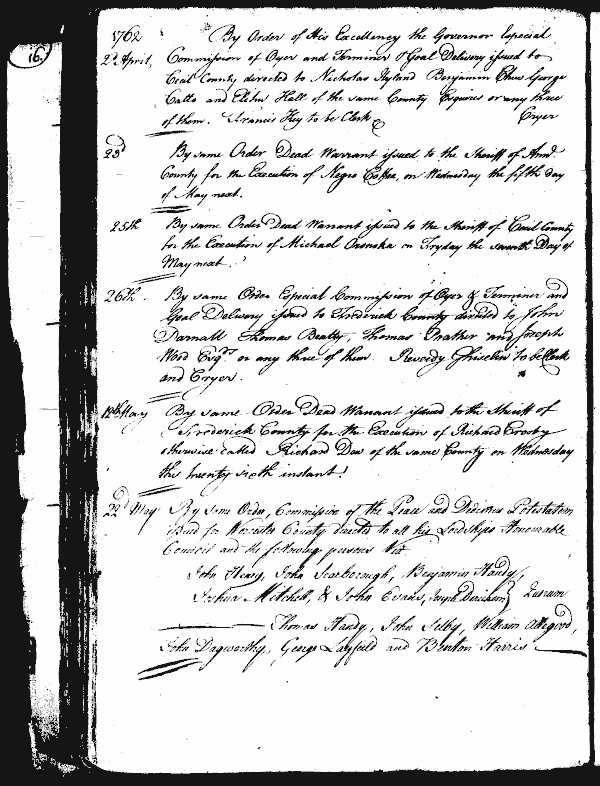 16.
1762 By Order of His Excellency the Governor Especial
2d April, Commission of Oyer and Terminer & Goal Delivery issued to
Cecil County directed to Nicholas Hyland Benjamin George
Catto and Elihu Hall of the same County Esquires or any three
of them. Francis Key to be Clerk Cryer
23d By same Order Dead Warrant issued to the Sheriff of Ann.
County for the Execution of Negro Coffee, on Wednesday the fifth day
of May next.
25th By same Order Dead Warrant issued to the Sheriff of Cecil County
for the Execution of Michael on Fryday the seventh Day of
May next.
26th. By same Order Especial Commission of Oyer & Terminer and
Goal Delivery issued to Frederick County directed to John
Darnall Thomas Beatty, Thomas Prather and Joseph
Wood Esqrs or any three of them. Reverdy Ghiselin to be Clerk
and Cryer.
18th May By same Order Dead Warrant issued to the Sheriff of
Frederick County for the Execution of Richard Crosby
otherwise called Richard Dow of the same County on Wednesday
the twenty sixth instant.
22d May By same Order, Commission of the Peace and Dedimus Potestatem
issued for Worcester County directed to all his Lordships Honourable
Council and the following persons Vizt
John Henry, John Scarborough, Benjamin Handy,
Joshua Mitchell, & John Evans, Joseph Quorum
Thomas Handy, John Selby, William Allegood,
John Dagworthy, George Layfield and Benton Harris